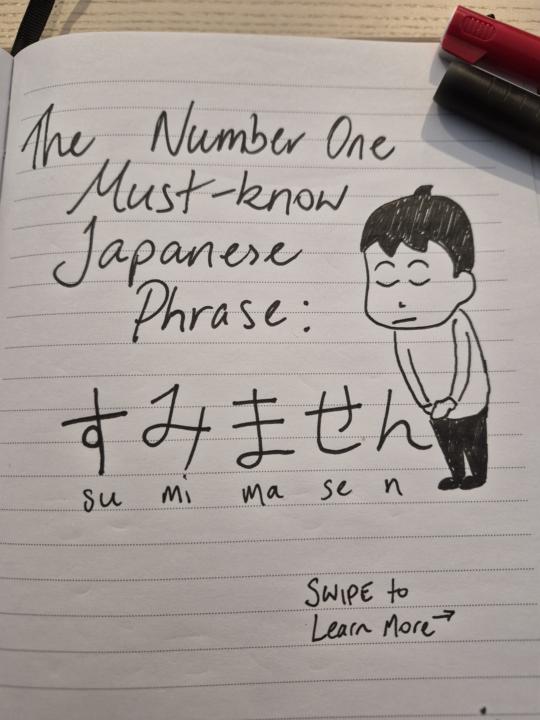 The Number One
Must-know
Japanese
Phrase:
すみません
su mi ma se n
SWIPE to
Learn More→